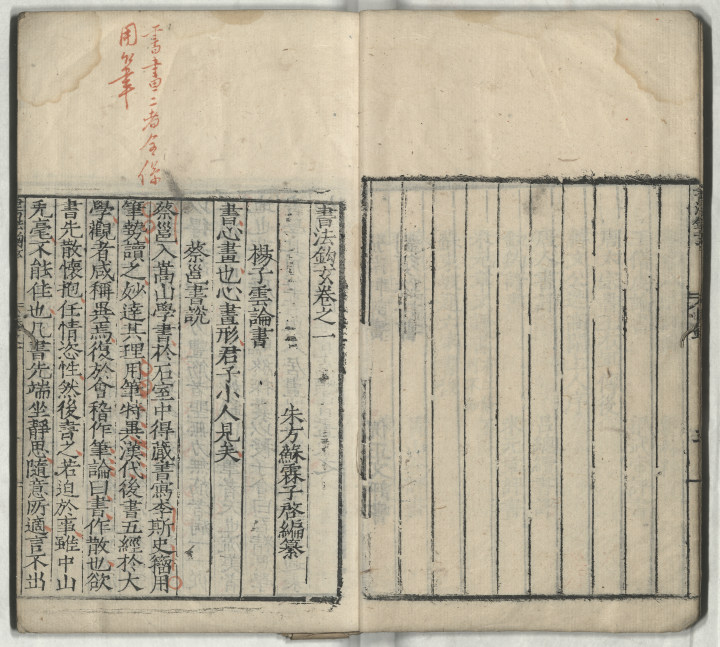 二者全係
用筆
書法鉤玄卷之一
朱方蘇霖子啓編纂
楊子雲論書
書心畫也心畫形君子小人見矣
蔡邕書說
蔡邕入嵩山學書於石室中得蔵書寫李斯史籀用
筆勢讀之妙達其理用筆特異漢代後書五經於大
學觀者咸稱異焉復於會稽作筆論曰書作散也欲
書先散懷抱任情恣性然後書之若迫於事雖中山
兎毫不能佳也凡書先端坐靜思隨意所適言不出